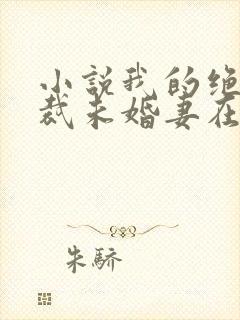 小説我的绝
裁未婚妻在
朱驕